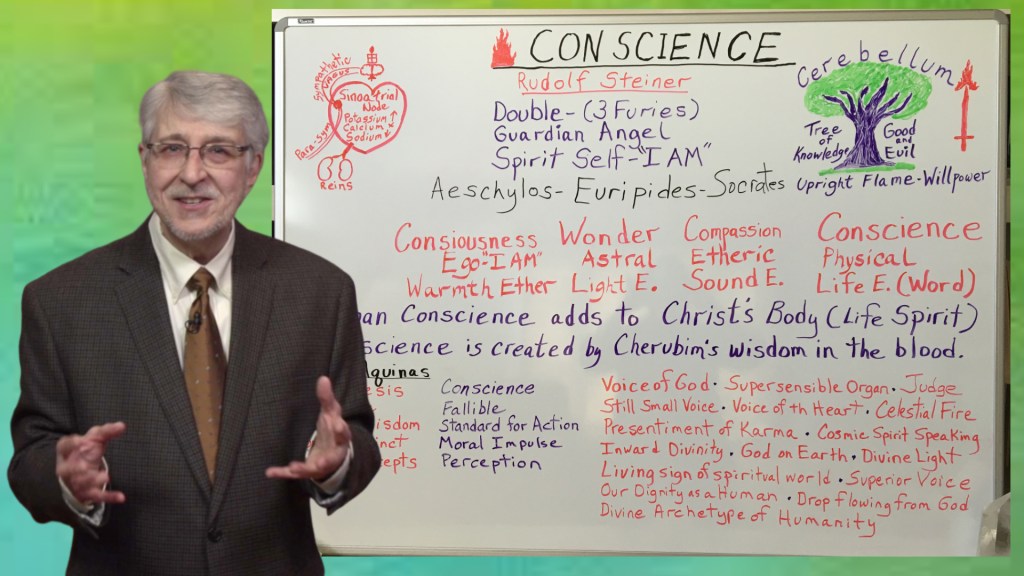 CONSCIENCE
Rudolf Steiner
Double- (3 Furies)
Guardian Angel
Spirit Self-"I AM"
Aeschylos- Euripides-Socrates
Sympathetic
Vagus
Sinoatrial
Node
Potassium ↑
Calcium
Sodium
Para-Sym
Reins
Cerebellum
Tree
of
Knowledge
Good
and
Evil
Upright Flame-Willpower
Consiousness Wonder Compassion Conscience
Ego"I AM" Astral Etheric Physical
Warmth Ether Light E. Sound E. Life E. (Word)
Conscience adds to Christ's Body (Life Spirit)
is created by Cherubim's wisdom in the blood.
Conscience
Fallible
Standard for Action
Moral Impulse
Perception
Voice of God · Supersensible Organ · Judge
Still Small Voice · Voice of th Heart · Celestial Fire
Presentiment of Karma · Cosmic Spirit Speaking
Inward Divinity · God on Earth · Divine Light
Living sign of spiritual world · Superior Voice
Our Dignity as a Human · Drop flowing from God
Divine Archetype of Humanity